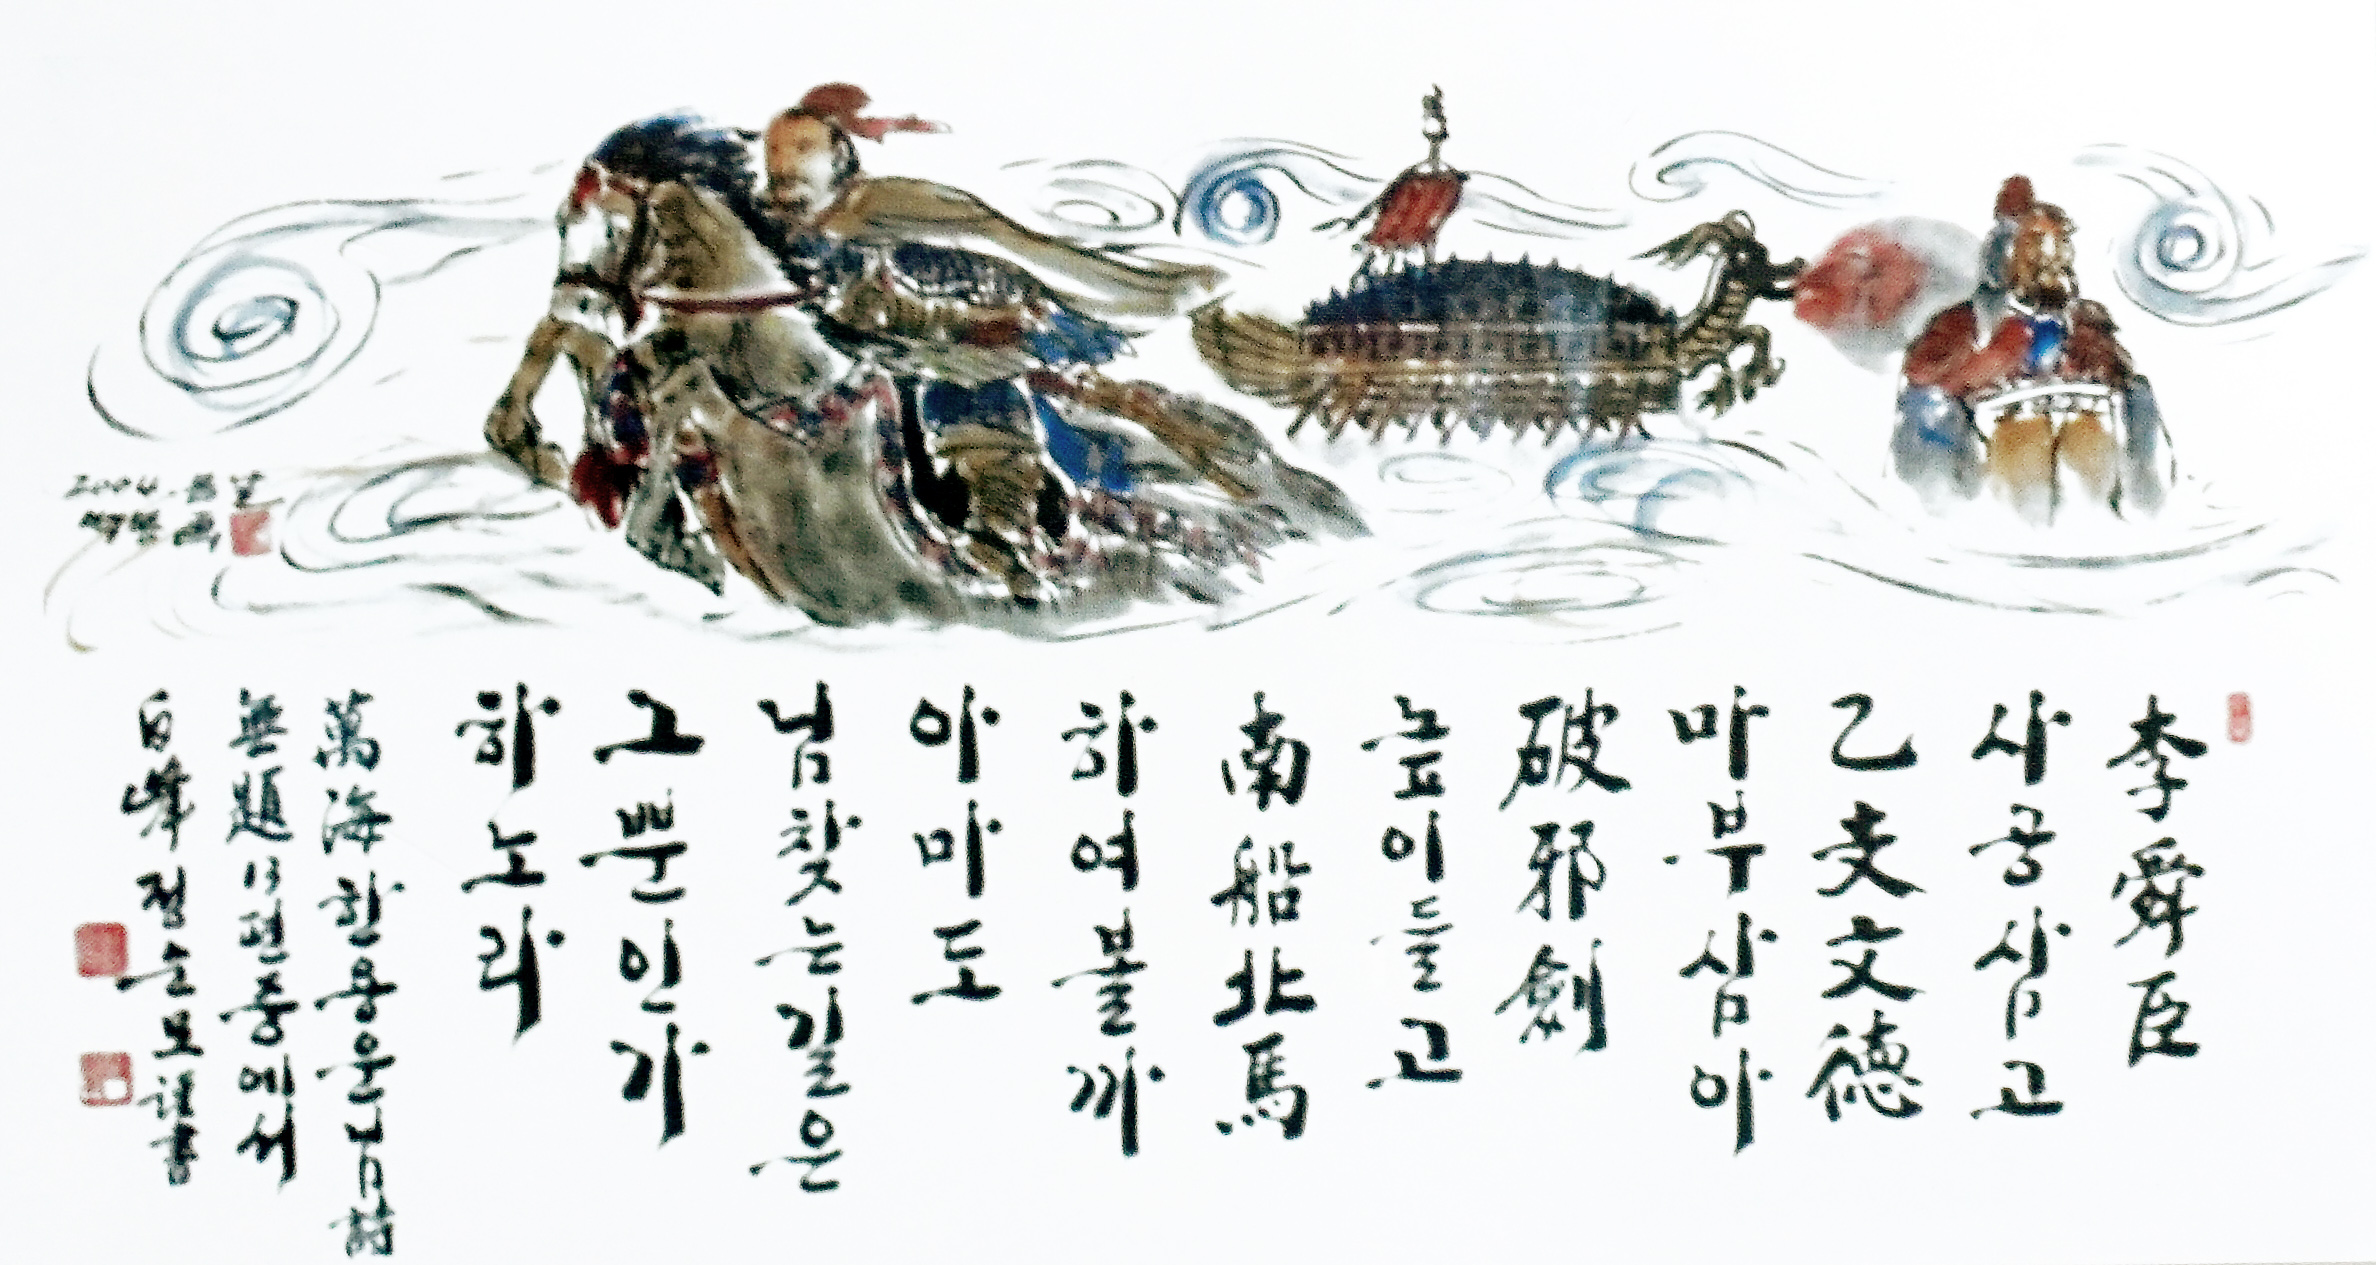 李舜臣
사공삼고
乙支文德
마부삼아
破邪劍
높이들고
南船北馬
하여볼까
아마도
님찾는길은
그뿐인가
하노라
萬海 한용운님 詩
無題 13편중에서
白峰 정순모 書
2004.